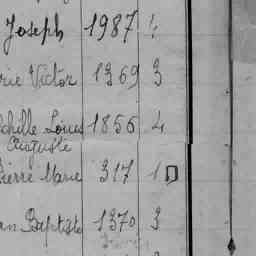 Joseph 1987 4
rie Victor 1369 3
chille Louis 1856 4
Auguste
Pierre Marie 317 1
an Baptiste 1370 3